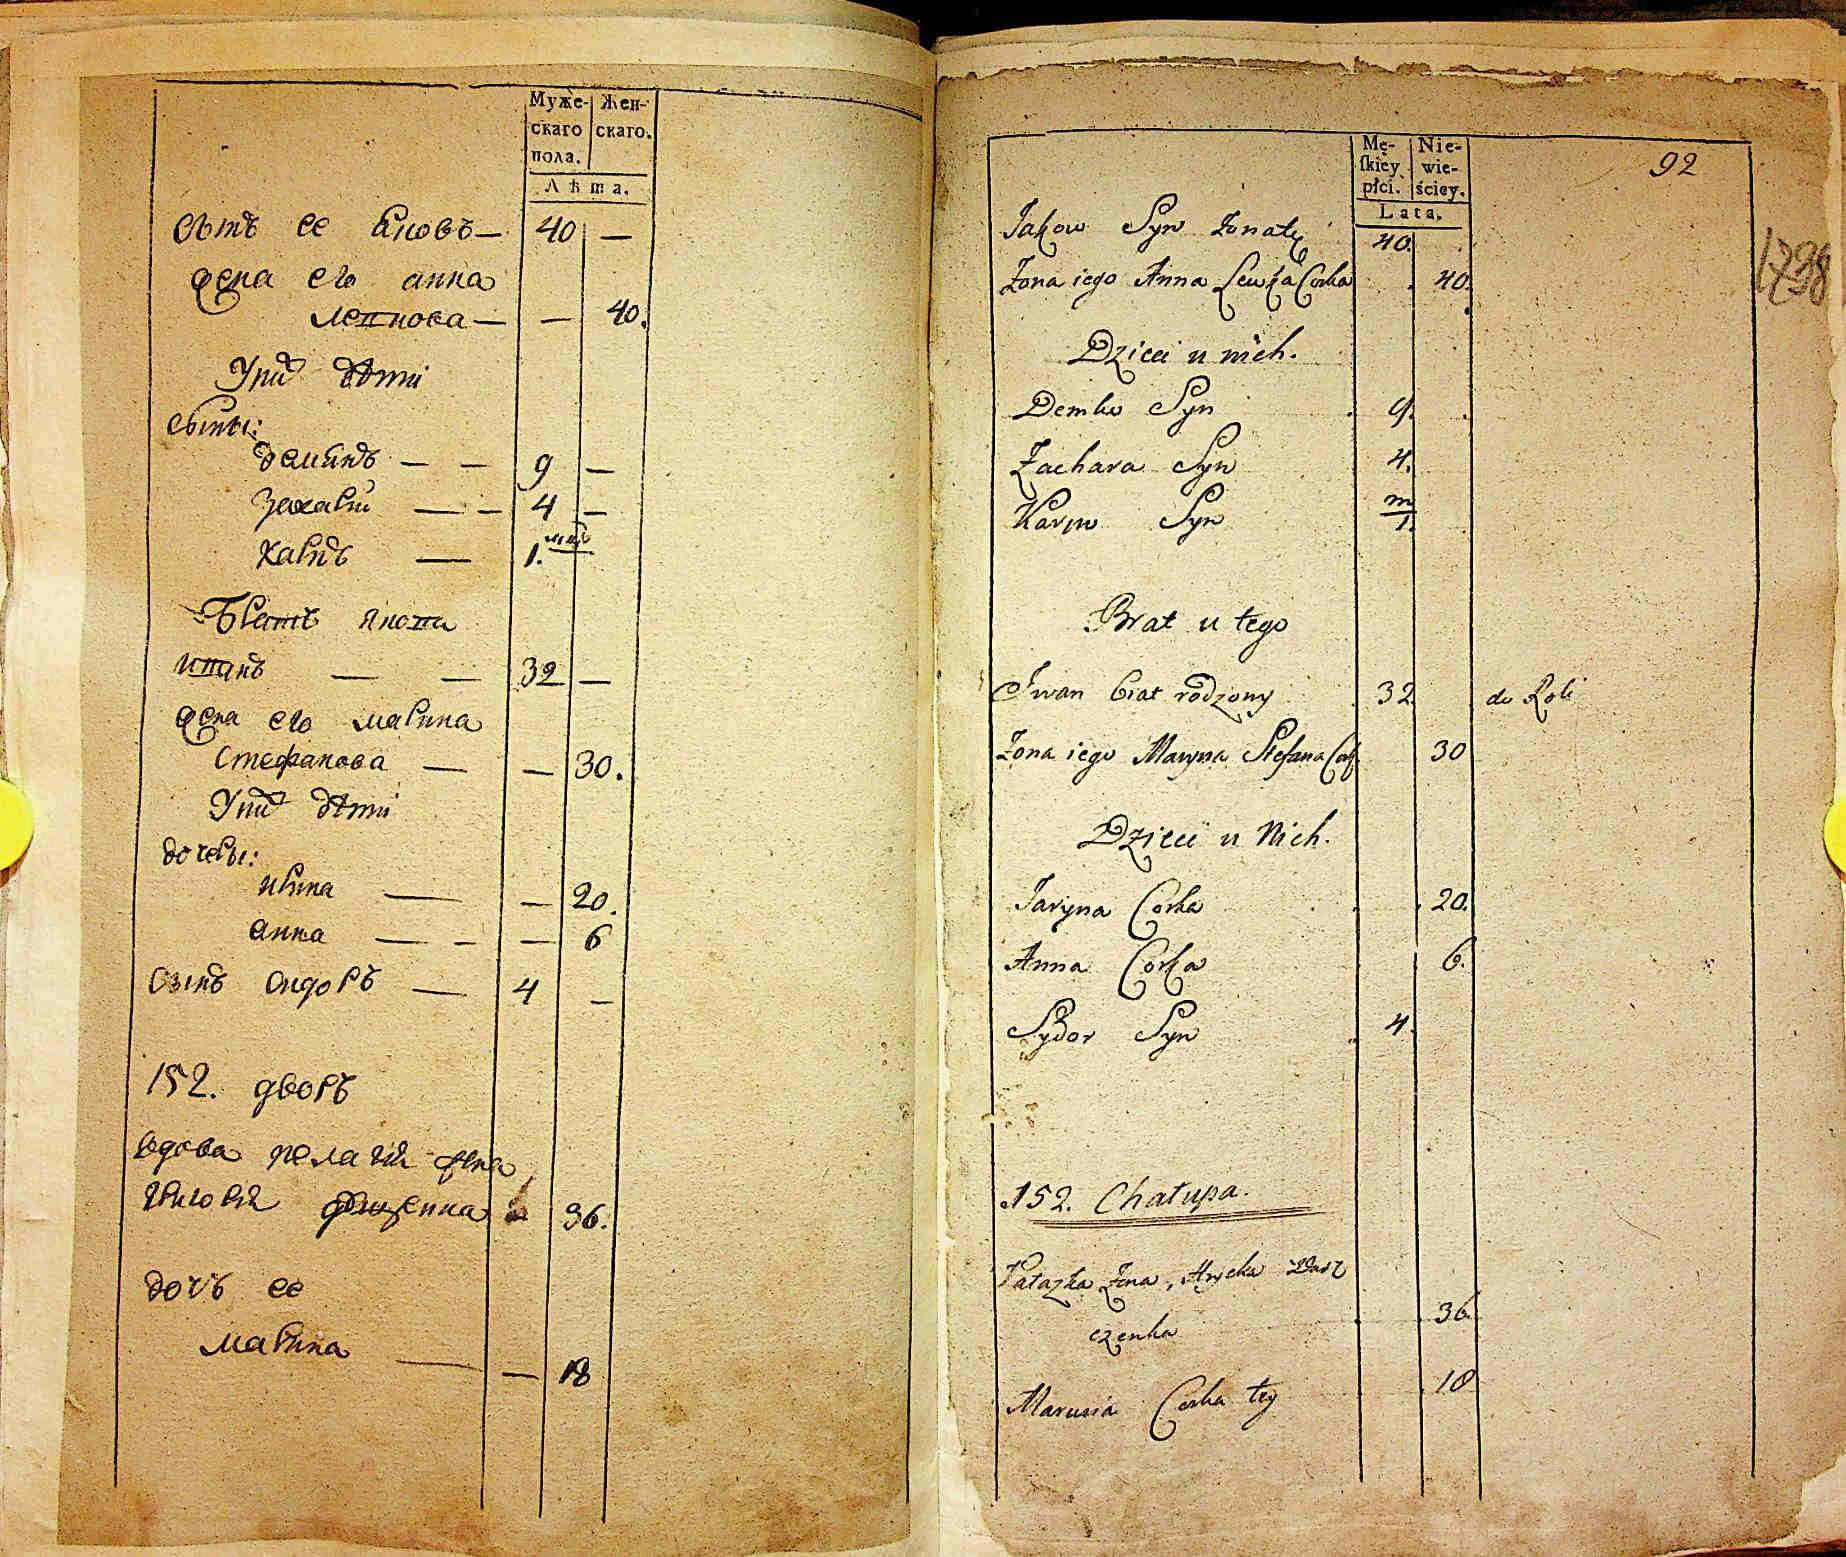 Муже- Жен-
скаго скаго.
пола.
Лѣта.
сынъ ее яковъ — 40 —
жена его анна
левкова — — 40.
У них дѣти
сыны:
деминъ — — 9 —
захарїй — — 4 —
карпъ — 1. мцъ
Братъ якова
иванъ — — 32 —
жена его марина
Стефанова — — 30.
У них дѣти
дочеры:
ирина — — 20.
анна — — — 6
Сынъ сидоръ — 4 —
152. дворъ
вдова пелагия жена
григория 36.
дочъ ее
марина — — 18
92
Mę- Nie-
skiey wie-
płci. ściey.
Lata.
Jakow Syn żonaty 40.
Żona iego Anna Lewka Corka 40.
Dzieci u nich.
Demko Syn 9.
Zachara Syn 4.
Karpo Syn m/1.
Brat u tego
Iwan brat rodzony 32 do Roli
Żona iego Maryna Stefana Cor 30
Dzieci u Nich.
Jaryna Corka 20.
Anna Corka 6.
Sydor Syn 4.
152. Chałupa.
Pałazka żona, Hrycka
czenka 36
Marusia Corka tey 18
1738